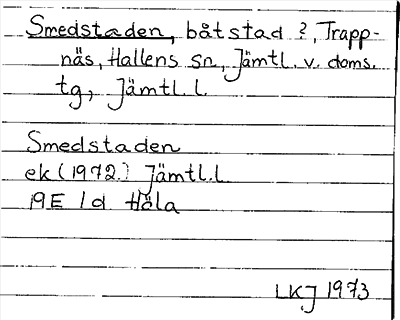 Smedstaden, båtstad ?, Trapp-
näs, Hallens sn, Jämtl. v. doms.
tg, Jämtl. l.
Smedstaden
ek (1972.) Jämtl. l
19E 1d Höla
LKJ 1973